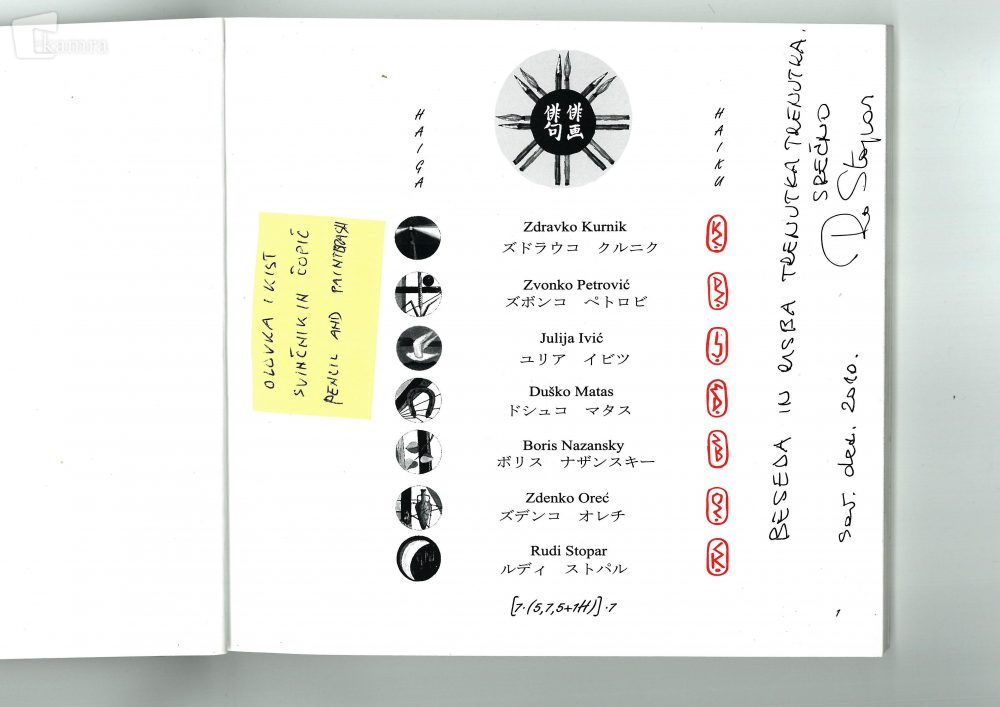 kamra
俳句 俳画
HAIGA
HAIKU
OLOVKA I KIST
SVINČNIK IN ČOPIČ
PENCIL AND PAINTBRUSH
Zdravko Kurnik
ズドラウコ クルニク
Zvonko Petrović
ズボンコ ペトロビ
Julija Ivić
ユリア イビツ
Duško Matas
ドシュコ マタス
Boris Nazansky
ボリス ナザンスキー
Zdenko Oreć
ズデンコ オレチ
Rudi Stopar
ルディ ストパル
[7·(5,7,5+1H)]·7
BESEDA IN RISBA TRENUTKA TRENUTKA.
SREČNO
Stopar
dec. 2010.
1